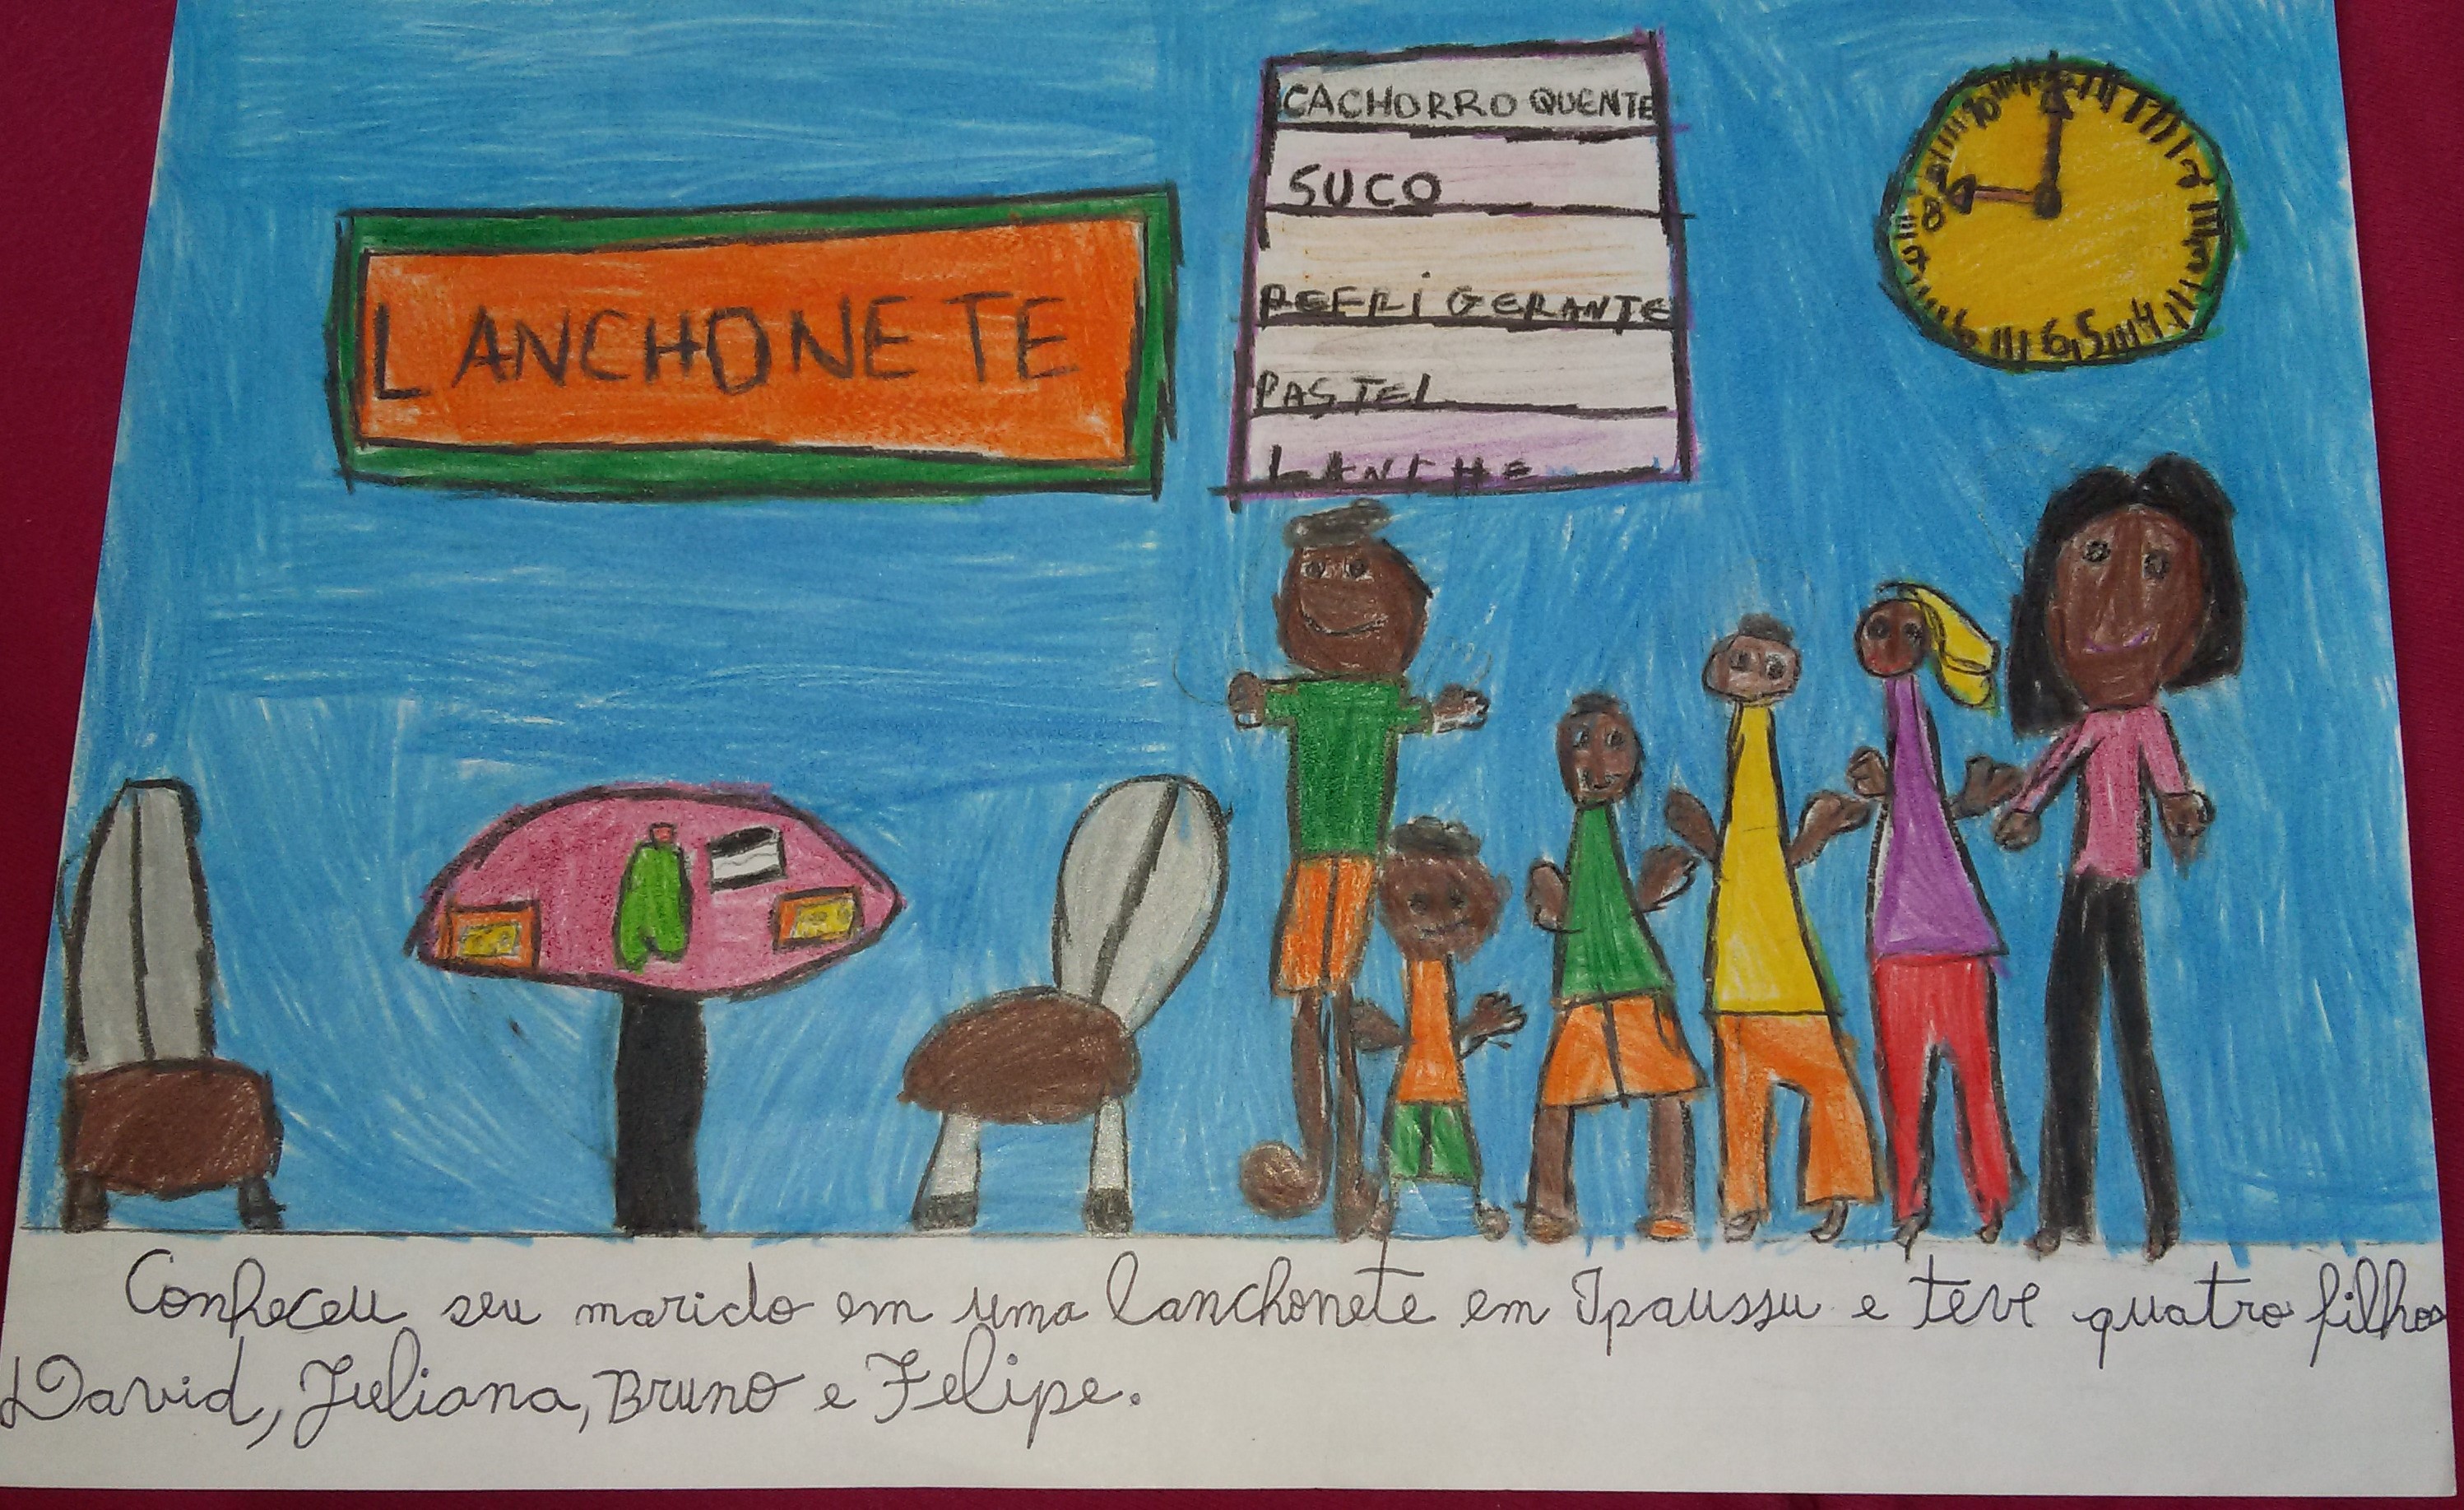 LANCHONETE
CACHORRO QUENTE
SUCO
REFRIGERANTE
PASTEL
LANCHE
10
2
8
4
5
6
Conheceu seu marido em uma lanchonete em Ipaussu e teve quatro filhos
David, Juliana, Bruno e Felipe.